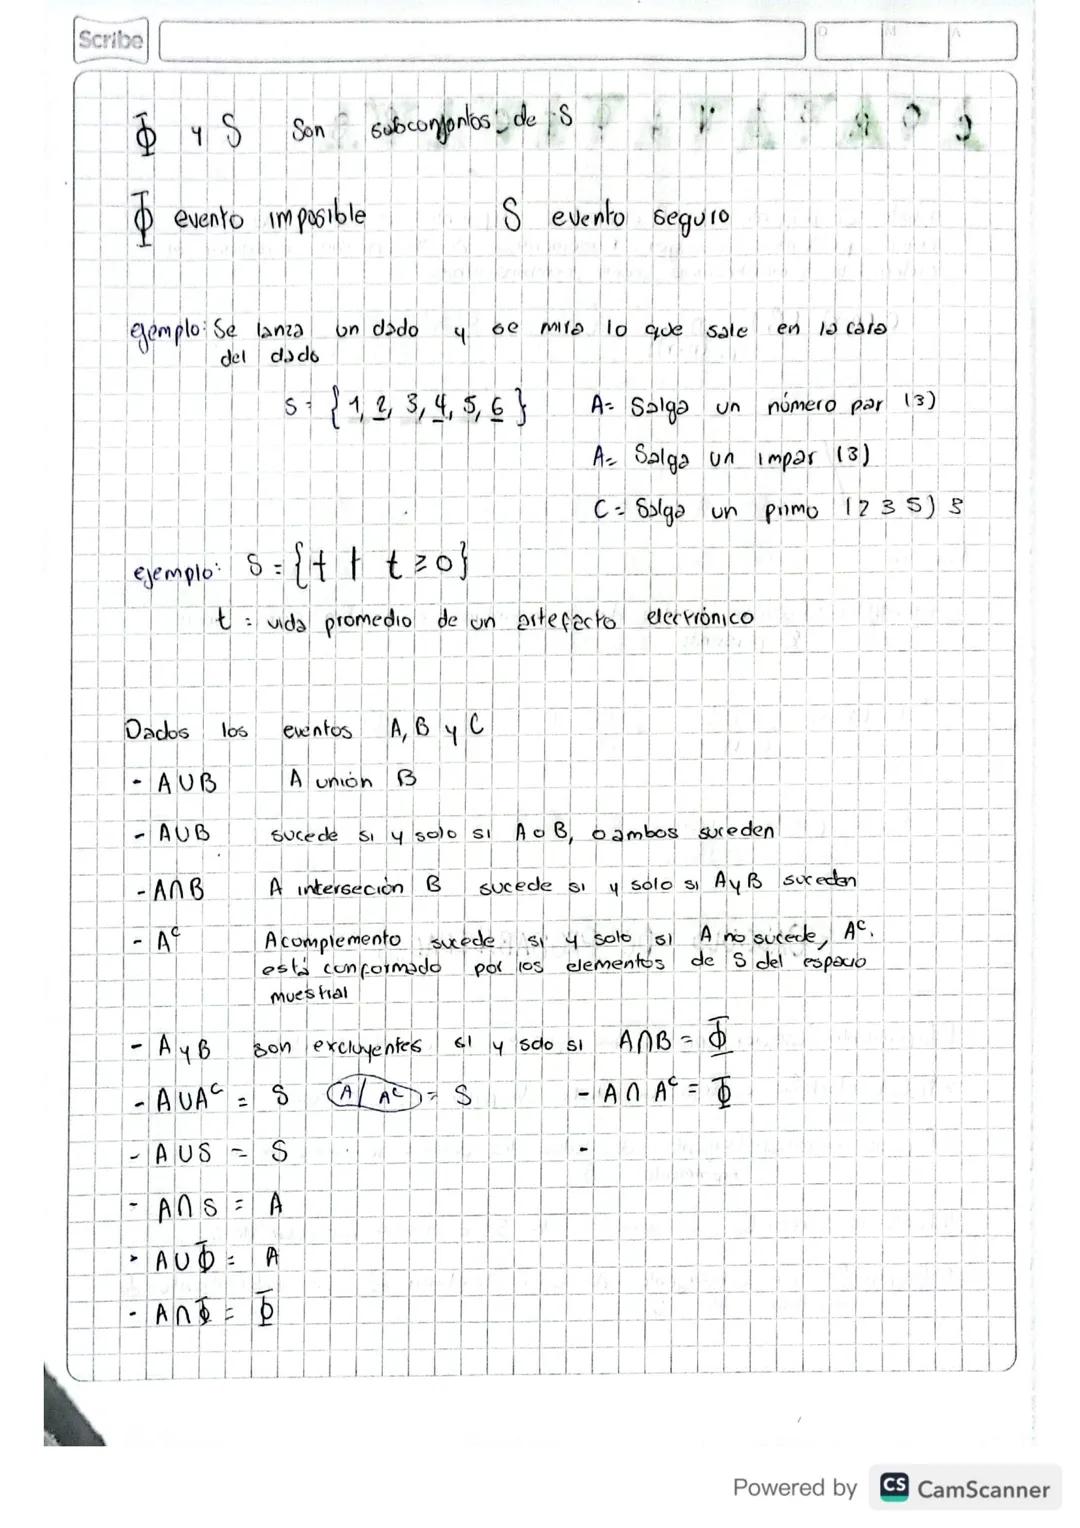 Scribe
D M A
Φ y S Son subconjontos de S
Φ evento imposible S evento seguro
ejemplo: Se lanza un dado y se mira lo que sale en la cara
del dado
S = {1, 2, 3, 4, 5, 6} A = Salga un número par (3)
A = Salga un impar (3)
C = Salga un primo (2 3 5) 3
ejemplo: S = {t | t ≥ 0}
t = vida promedio de un artefacto electrónico
Dados los eventos A, B y C
- A∪B A unión B
- A∪B sucede si y solo si A o B, o ambos suceden
- A∩B A interseción B sucede si y solo si A y B suceden
- Aᶜ A complemento sucede si y solo si A no sucede, Aᶜ.
está conformado por los elementos de S del espacio
muestral
- A y B son excluyentes si y solo si A∩B = Φ
- A∪Aᶜ = S A/Aᶜ = S - A∩Aᶜ = Φ
- A∪S = S -
- A∩S = A
- A∪Φ = A
- A∩Φ = Φ
Powered by CS CamScanner